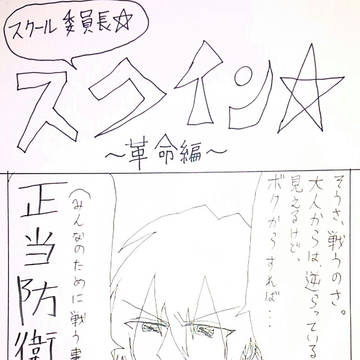 スクール委員長☆
スクイン☆
～革命編～
そうさ、戦うのさ。
大人からは、逆らっている
見えるけど、
ボクからすれば…
(みんなのために戦う事
正当防衛